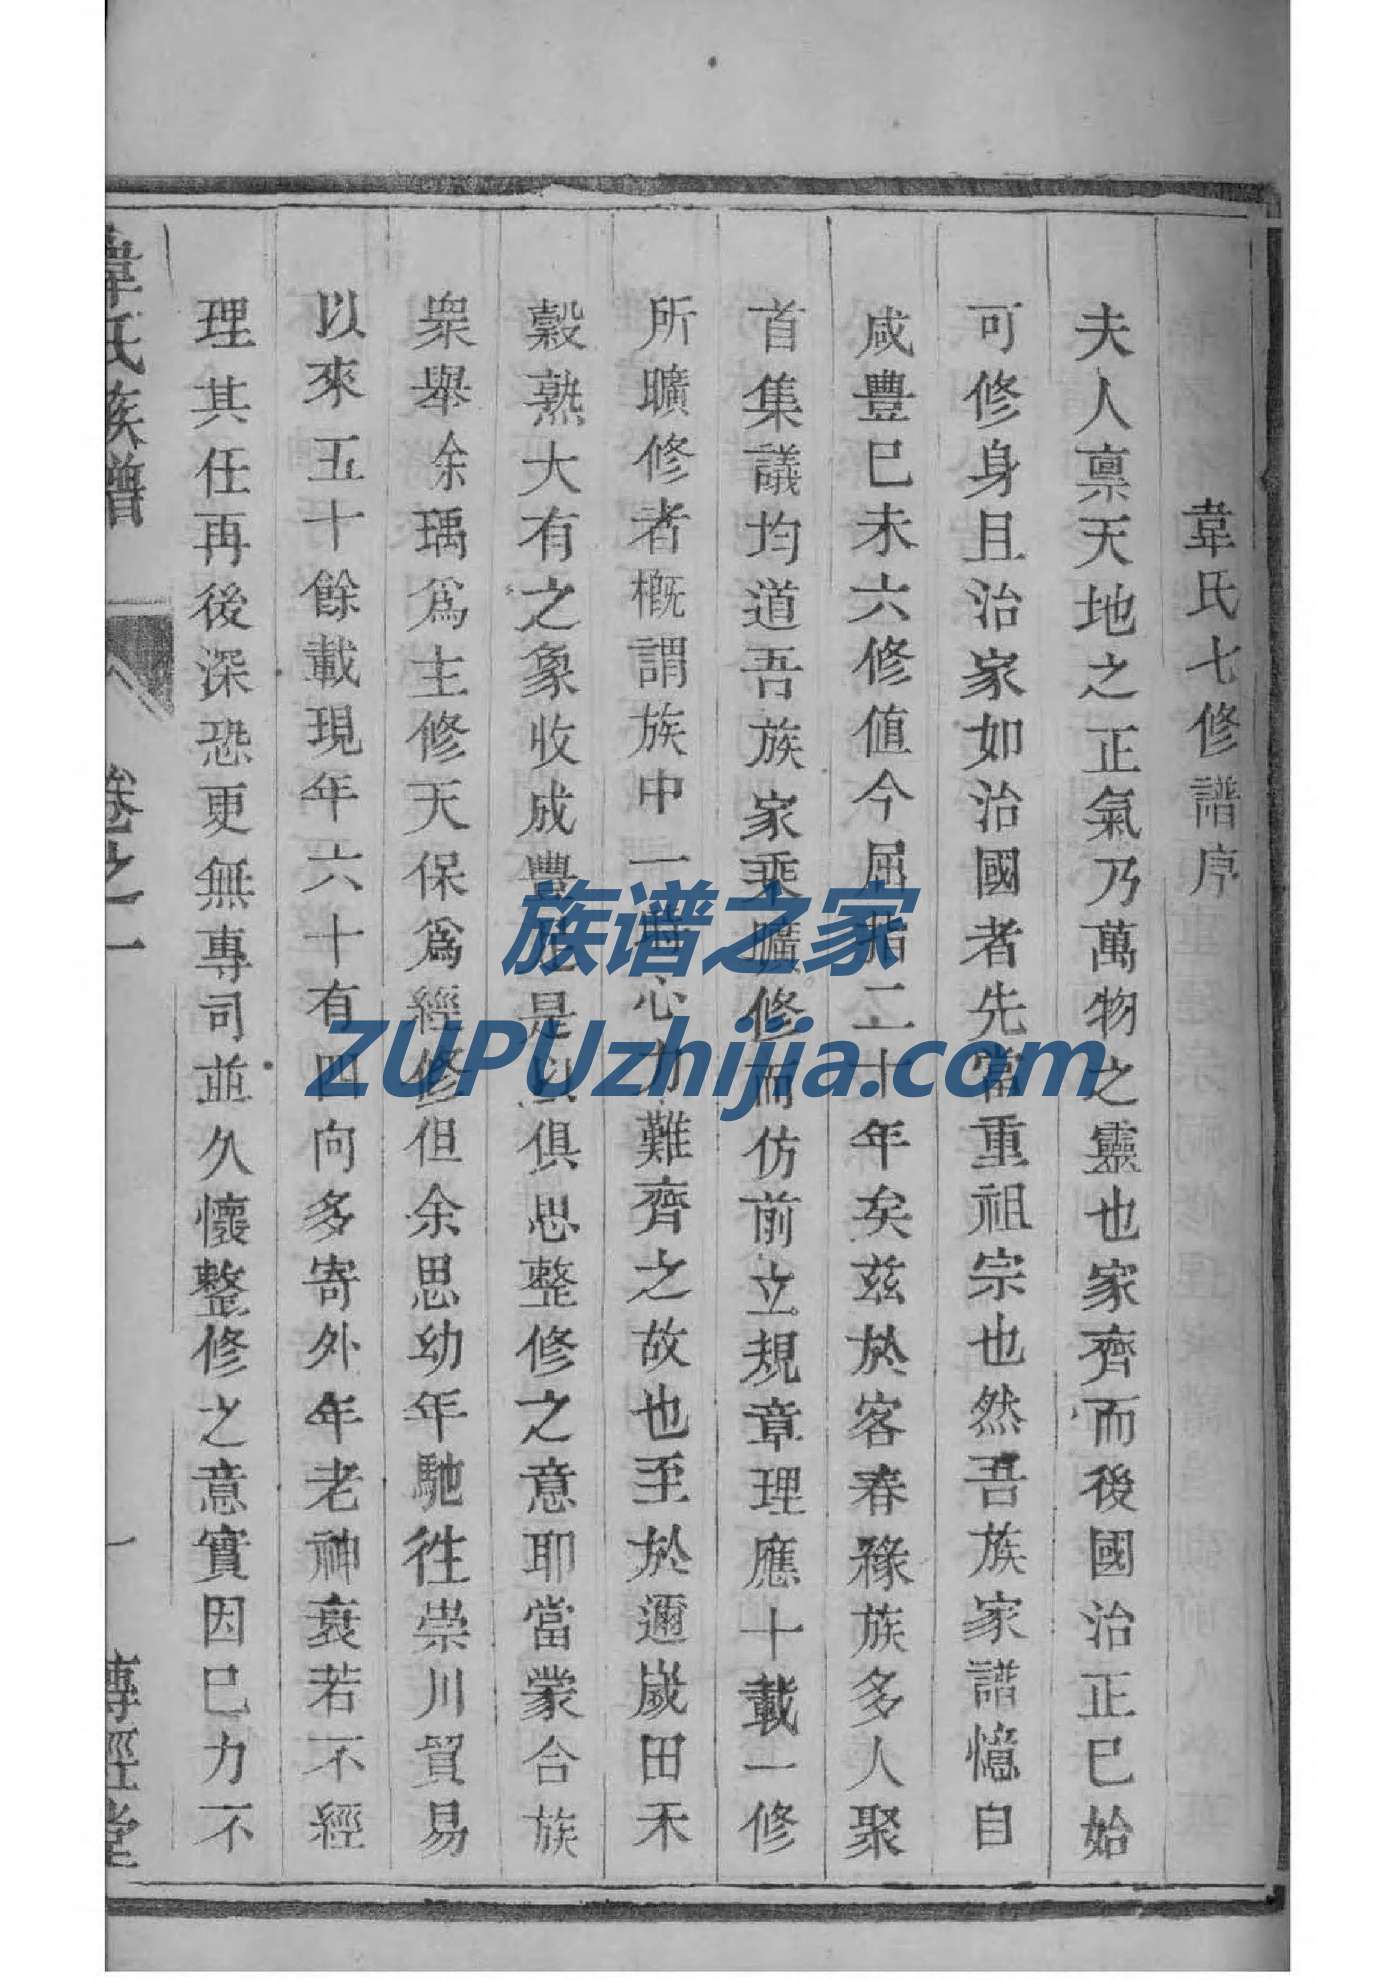 韋氏七修譜序
夫人禀天地之正氣乃萬物之靈也家齊而後國治正已始
可修身且治家如治國者先當重祖宗也然吾族家譜憶自
咸豐巳未六修值今屈指二十年矣茲於客春豫族多人聚
首集議均道吾族家乘曠修而仿前立規章理應十載一修
所曠修者概謂族中一時心力難齊之故也至於邇嵗田禾
穀熟大有之象收成豐足是以俱思整修之意耶當蒙合族
衆舉余瑀爲主修天保爲經修但余思幼年馳徃崇川貿易
以來五十餘載現年六十有四向多寄外年老神衰若不經
理其任再後深恐更無專司並久懷整修之意實因巳力不
韋氏族譜
卷之一
一
傳經堂
族谱之家
ZUPUzhijia.com